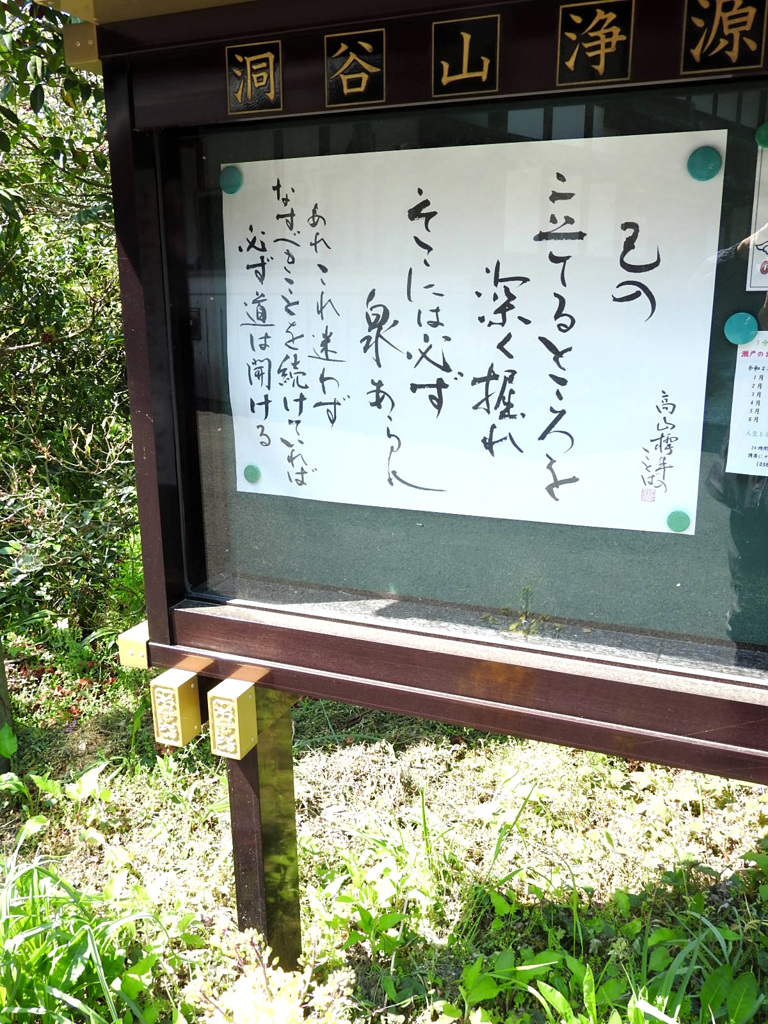 洞谷山浄源
己の
立てるところを
深く掘れ
そこには必ず
泉あらん
高山樗牛の
ことば
あれこれ迷わず
なすべきことを続けていれば
必ず道は開ける
1月
2月
3月
4月
5月
6月